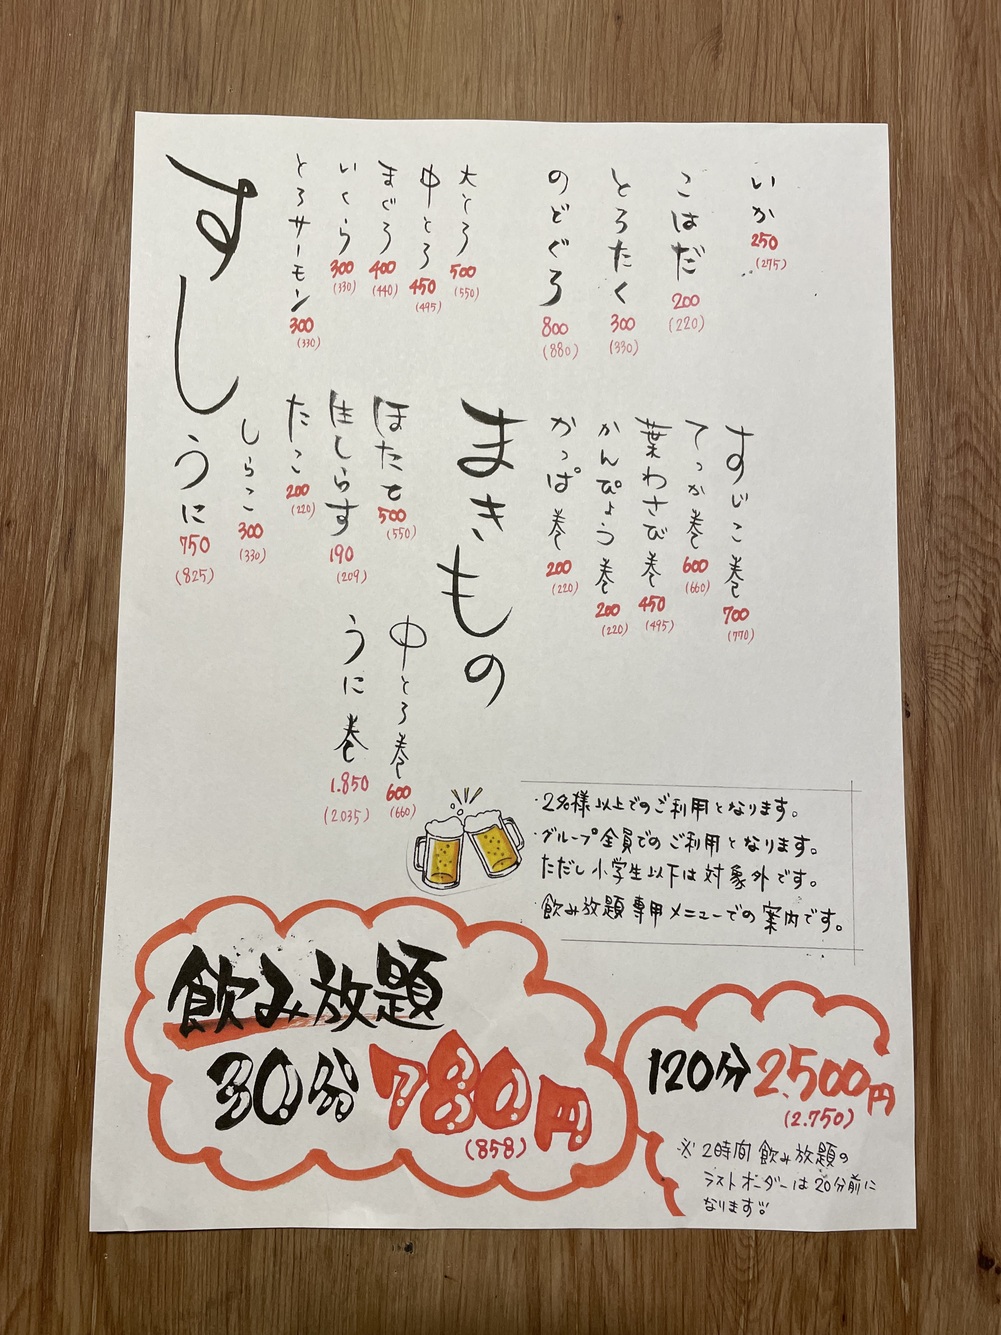 いか 250 (275)
こはだ 200 (220)
とろたく 300 (330)
のどぐろ 800 (880)
大とろ 500 (550)
中とろ 450 (495)
まぐろ 400 (440)
いくら 300 (330)
とろサーモン 300 (330)
すし
ほたて 500 (550)
生しらす 190 (209)
たこ 200 (220)
しらこ 300 (330)
うに 750 (825)
すじこ巻 700 (770)
てっか巻 600 (660)
葉わさび巻 450 (495)
かんぴょう巻 200 (220)
かっぱ巻 200 (220)
まきもの
中とろ巻 600 (660)
うに巻 1.850 (2.035)
・2名様以上でのご利用となります。
・グループ全員でのご利用となります。
ただし小学生以下は対象外です。
・飲み放題専用メニューでの案内です。
飲み放題
30分 780円
(858)
120分 2.500円
(2.750)
※2時間飲み放題の
ラストオーダーは20分前に
なります!!